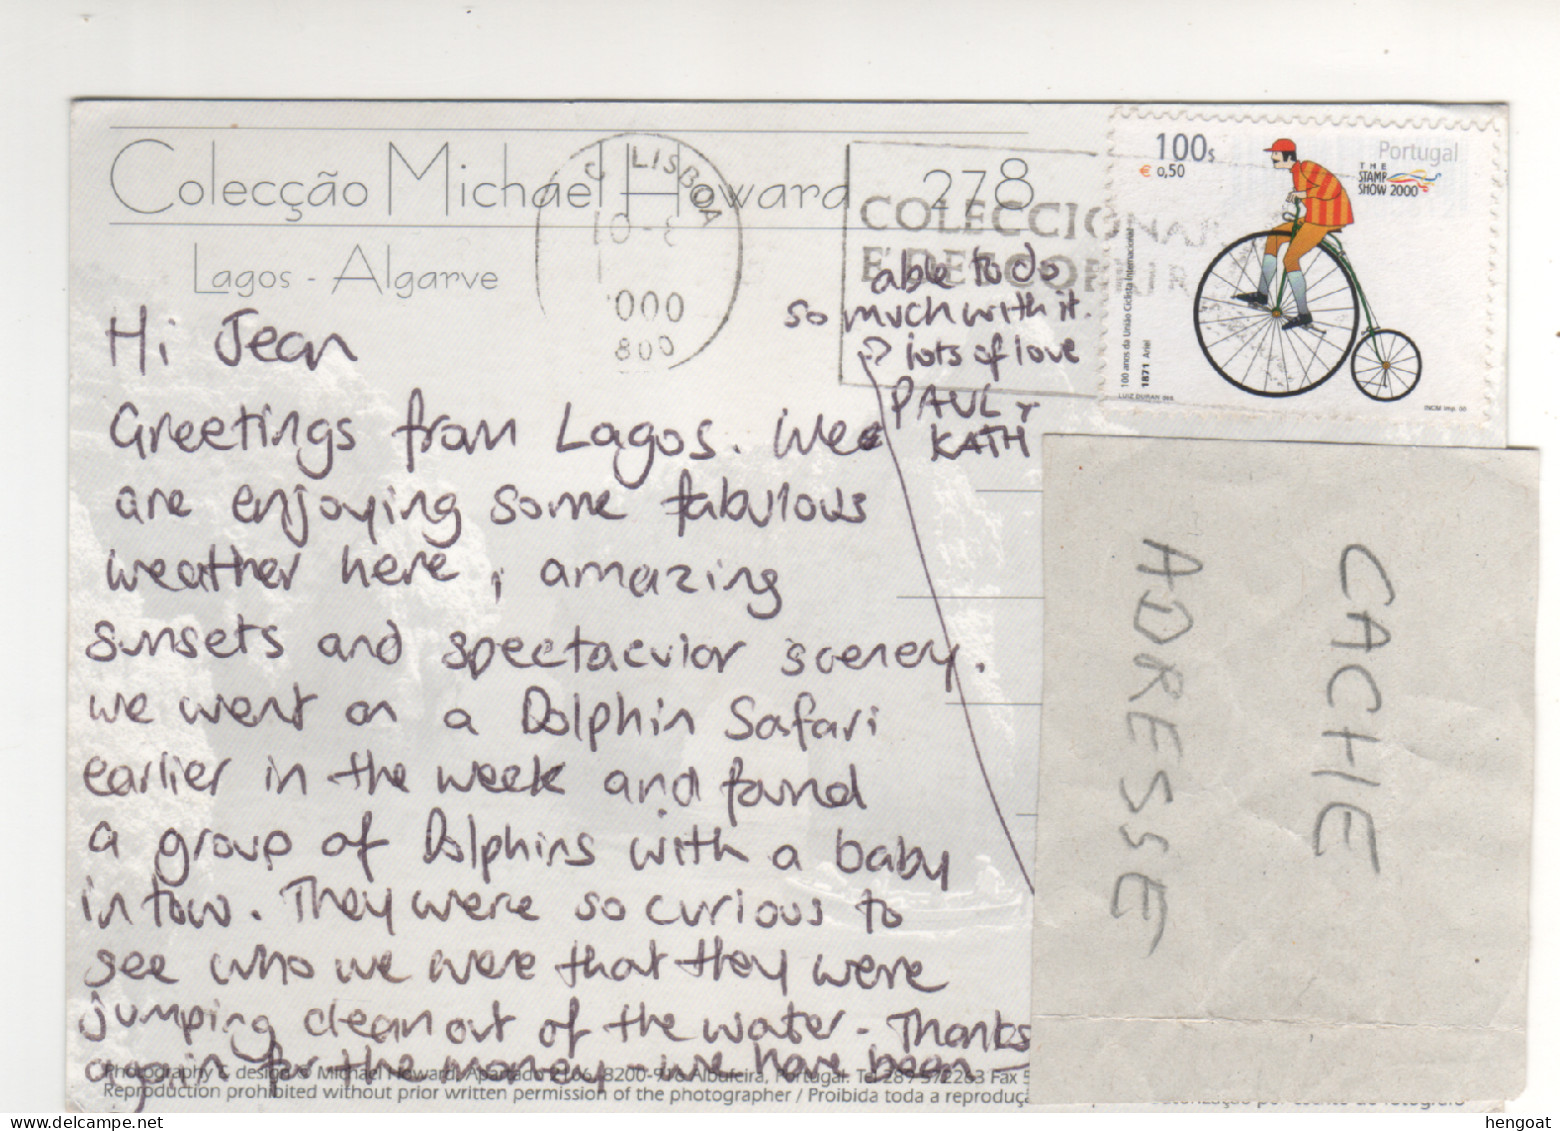 Colecção Michael Howard 278
Lagos - Algarve
LISBOA
000
800
COLECCIONAR
100s
€ 0,50
Portugal
THE
STAMP
SHOW 2000
100 anos da União Ciclista Internacional
1871 Ariel
LUIZ DURAN des
INCM imp. 00
Hi Jean
Greetings from Lagos. We
are enjoying some fabulous
weather here, amazing
sunsets and spectacular scenery.
we went on a Dolphin Safari
earlier in the week and found
a group of Dolphins with a baby
in tow. They were so curious to
see who we were that they were
jumping clean out of the water. Thanks
again for the money - we have been
able to do
so much with it.
lots of love
PAUL +
KATH
CACHE
ADRESSE
Photography & design © Michael Howard. Apartado 2166, 8200-916 Albufeira, Portugal. Tel 289 572283 Fax
Reproduction prohibited without prior written permission of the photographer / Proibida toda a
hengoat